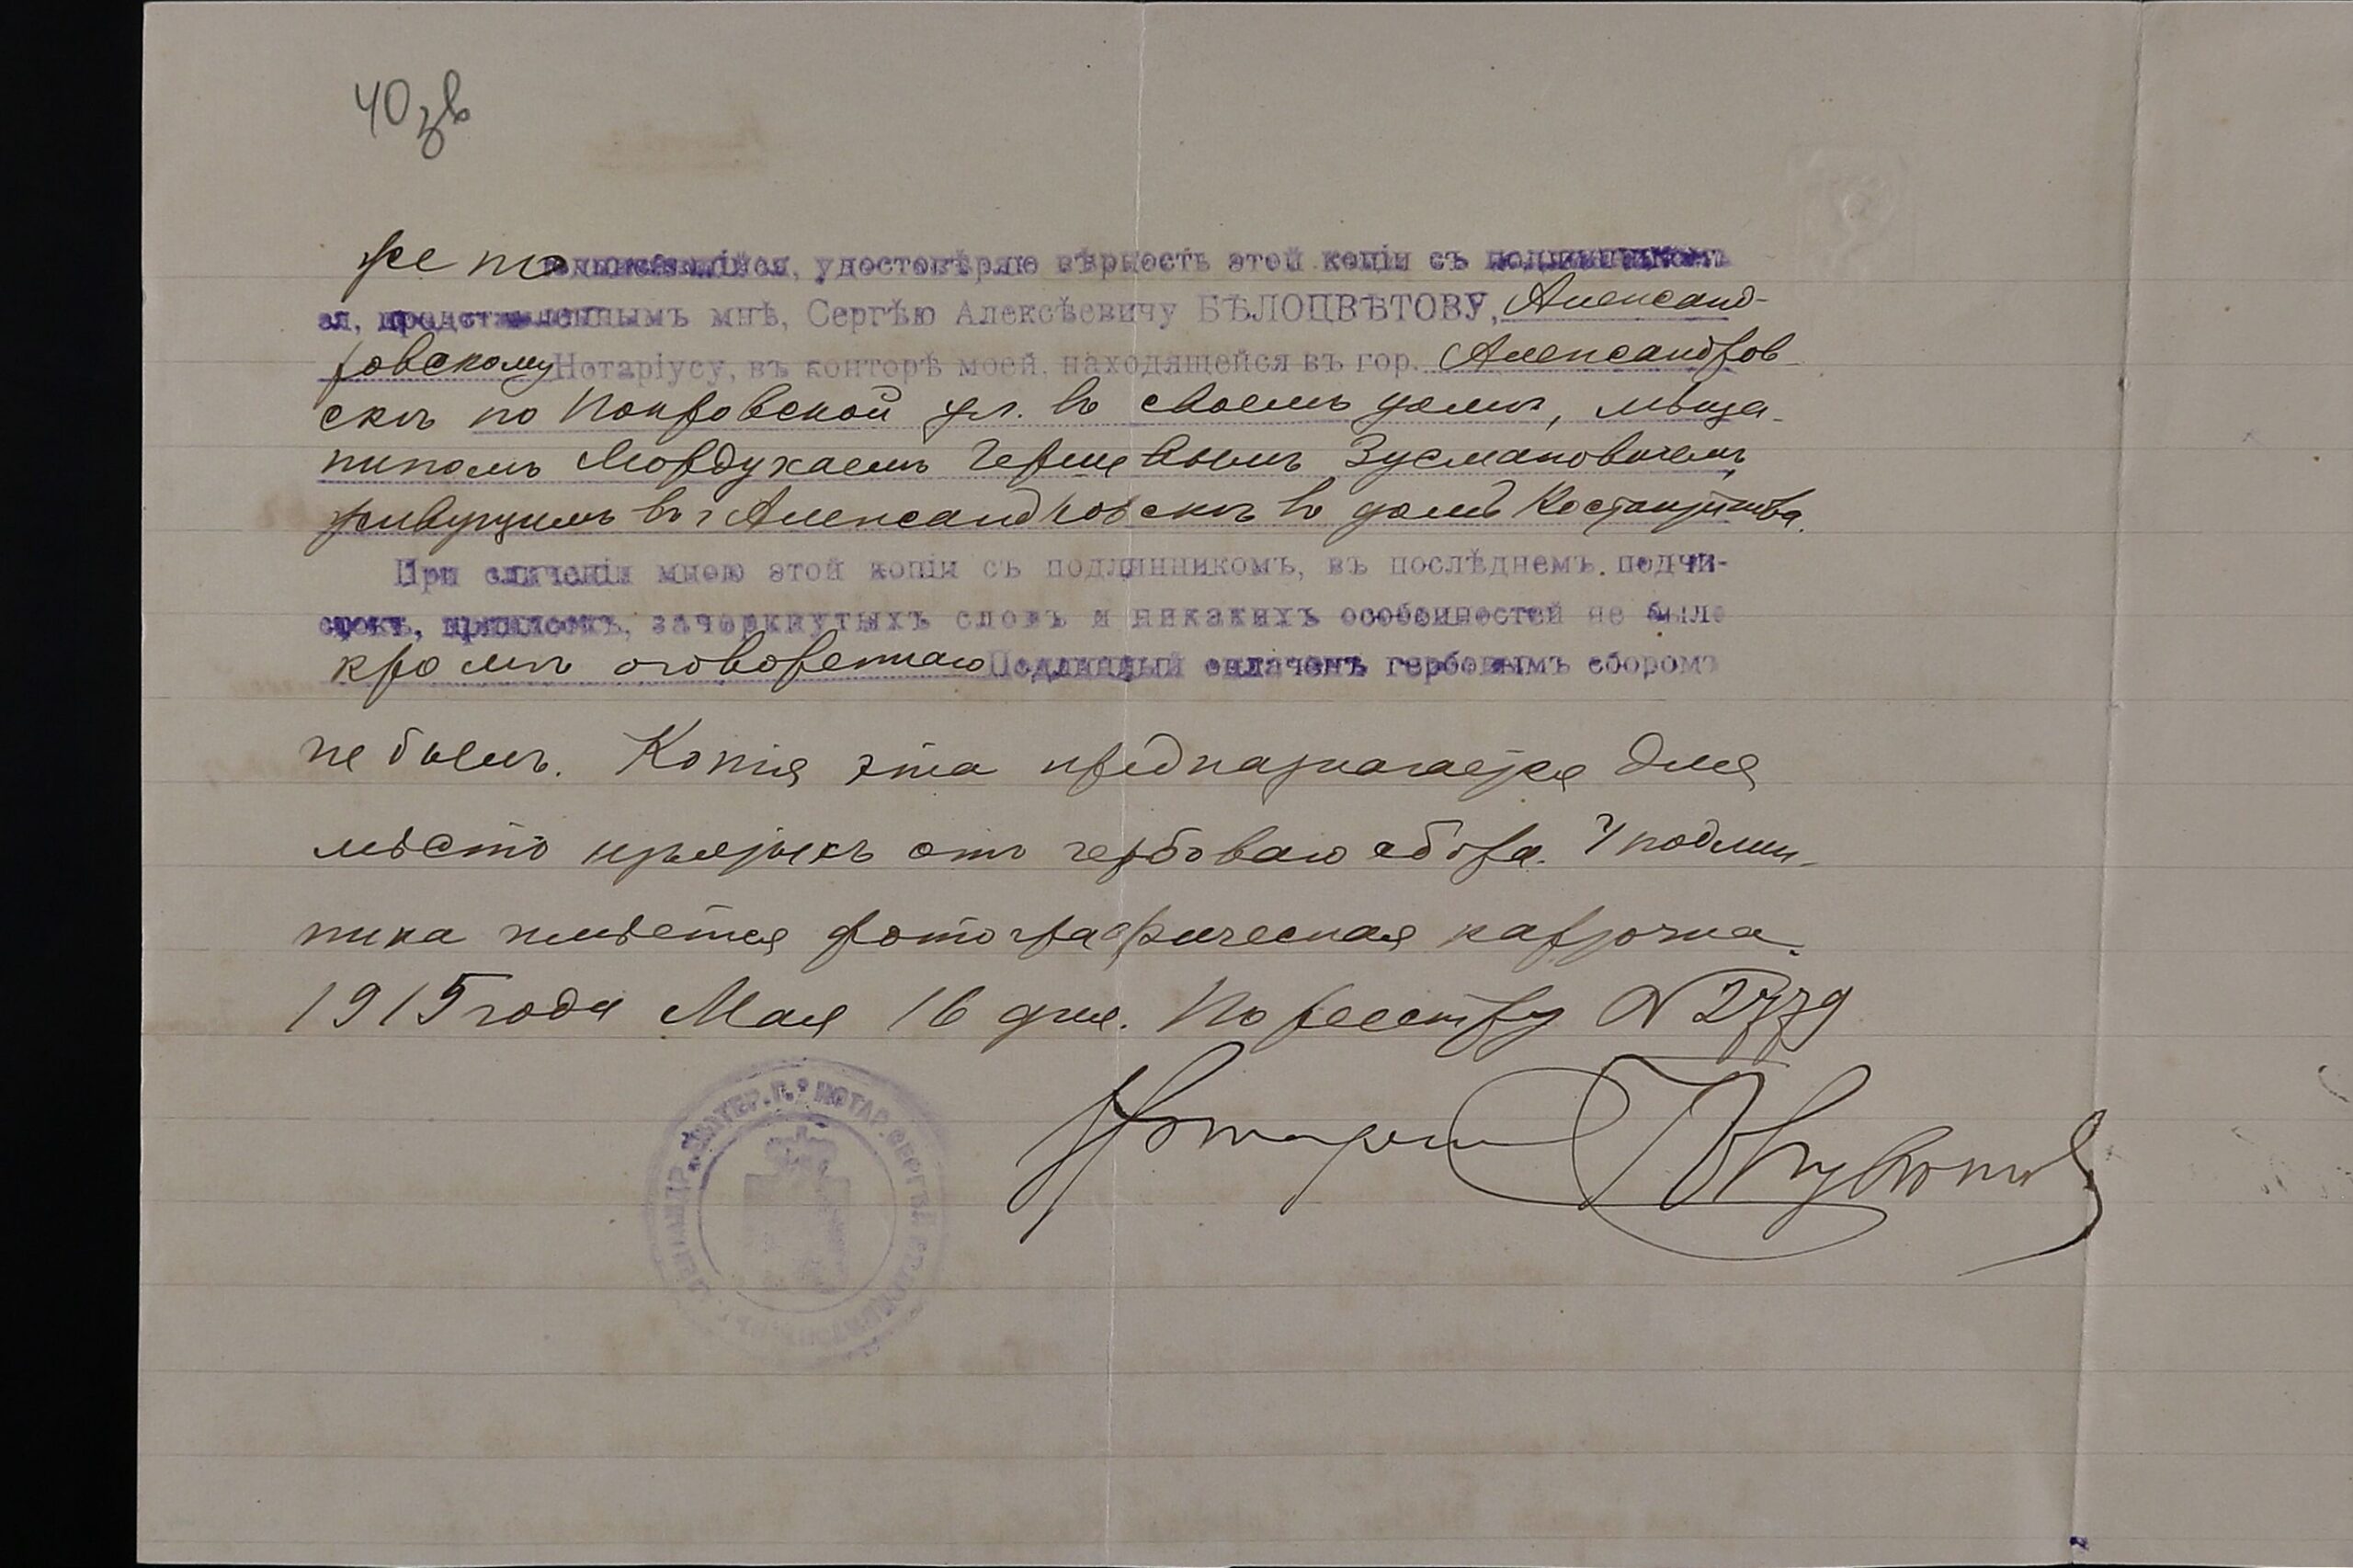 40 зв
нижеподписавшійся, удостовѣряю вѣрность этой копіи съ подлинникомъ
ея, представленнымъ мнѣ, Сергѣю Алексѣевичу БѢЛОЦВѢТОВУ, Александ-
ровскому Нотаріусу, въ конторѣ моей, находящейся въ гор. Александров-
скѣ по Покровской ул. въ своемъ домѣ, мѣща-
ниномъ Мордухаемъ Гершевымъ Зусмановичемъ,
живущимъ въ г Александровскѣ въ домѣ
При сличеніи мною этой копіи съ подлинникомъ, въ послѣднемъ подчи-
стокъ, приписокъ, зачеркнутыхъ словъ и никакихъ особенностей не было
кромѣ оговореннаго Подлинный оплаченъ гербовымъ сборомъ
не былъ. Копія эта предназначается для
мѣстъ изъятыхъ отъ герброваго сбора. У подлин-
ника имѣется фотографическая карточка.
1915 года Мая 16 дня. По реестру № 2779
Нотаріусъ
НОТАР. СЕРГѢЙ